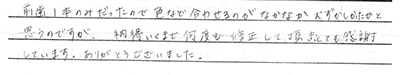 前歯1本のみだったので色など合わせるのがなかなかむずかしかたかと
思うのですが、納得いくまで何度も修正して頂きとても感謝
しています。ありがとうございました。